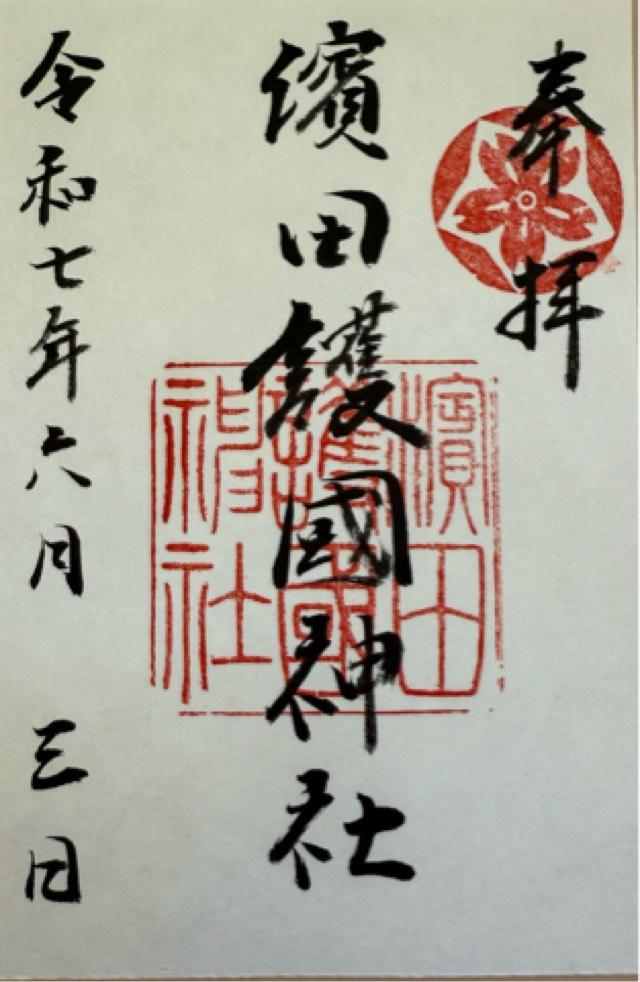 奉拝
濱田護國神社
濱田
護國
神社
令和七年六月 三日